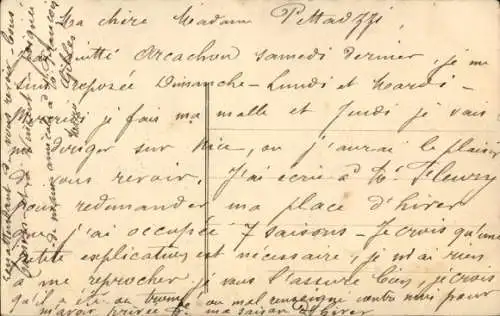 Ma chère Madame Pettadzzi,
J'ai quitté Arcachon samedi dernier, je me
suis reposée Dimanche - Lundi et Mardi -
Mercredi je fais ma malle et Jeudi je vais
me diriger sur Nice, ou j'aurai le plaisir
de vous revoir, J'ai écrie à Mr Fleury
pour redemander ma place d'hiver
que j'ai occupée 7 saisons - Je crois qu'une
petite explication est nécessaire, je n'ai rien
à me reprocher, je vous l'assure bien, je crois
qu'il a été ou trompé ou mal renseigné contre moi pour
m'avoir privée de ma saison d'hiver
En attendant de vous revoir tous